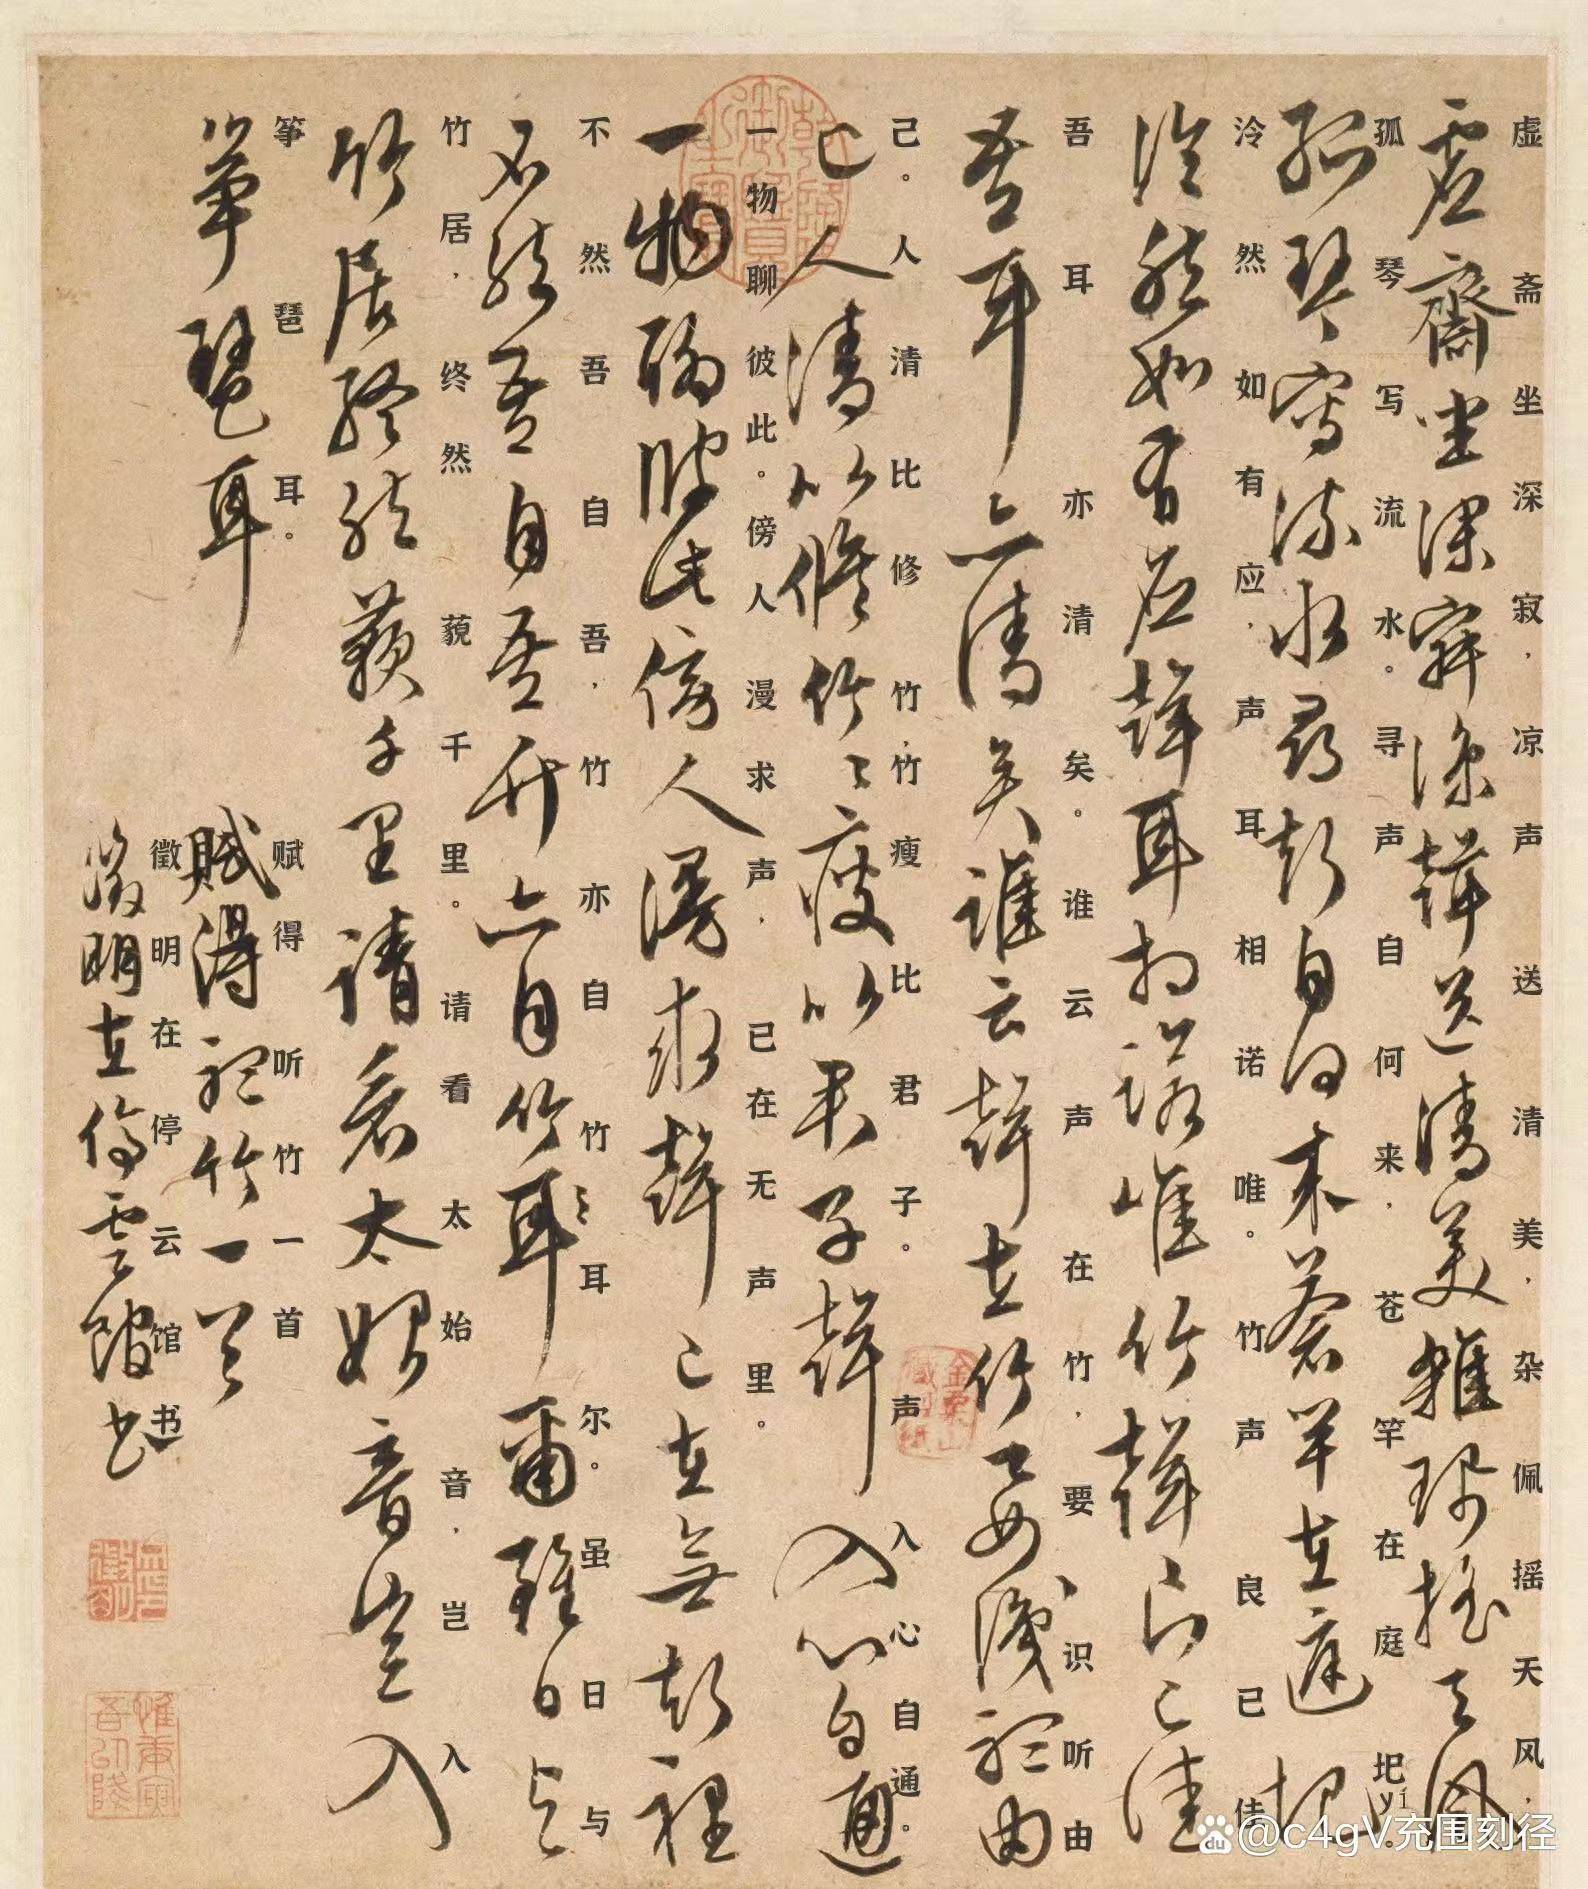 虚斋坐深寂，凉声送清美，杂佩摇天风，
虚齋坐深寂涼聲送清美雜珮摇天風
孤琴写流水。寻声自何来，苍竿在庭圯。
yí
孤琴寫流水尋声自何来蒼竿在庭圯
泠然如有应，声耳相诺唯。竹声良已佳
泠然如有应聲耳相諾唯竹聲良已佳
吾耳亦清矣。谁云声在竹，要识听由
吾耳亦清矣誰云聲在竹要識聽由
己。人清比修竹，竹瘦比君子。声入心自通。
己人清比脩竹竹瘦比君子聲入心自通
一物聊彼此。傍人漫求声，已在无声里。
一物聊彼此傍人漫求聲已在無声裡
不然吾自吾，竹亦自竹耳尔。虽日与
不然吾自吾竹亦自竹耳爾雖日与
竹居，终然藐千里。请看太始音，岂入
竹居終然藐千里請看太始音豈入
筝琶耳。
筝琶耳
赋得听竹一首
賦得聽竹一首
徵明在停云馆书
徵明在停雲館书
乾隆御覽之寶
金粟山藏經紙
惟庚寅吾以降
@c4gV充围刻径